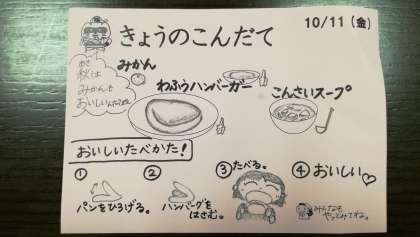 きょうのこんだて
10/11(金)
秋は
みかんも
おいしい
みかん
わふうハンバーガー
こんさいスープ
おいしいたべかた!
①
パンをひろげる。
②
ハンバーグを
はさむ。
③たべる。
④おいしい♡
みんなも
やってみてね。